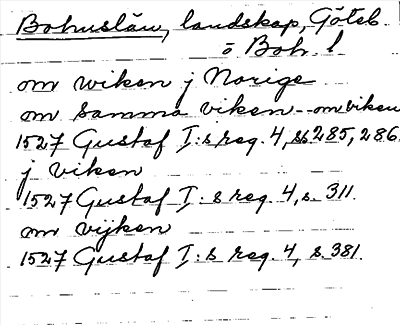 Bohuslän, landskap, Göteb.
o Boh. l
om wiken j Norige
om samma viken - om viken
1527 Gustaf I:s reg. 4, ss 285, 286.
j viken
1527 Gustaf I:s reg. 4, s. 311.
om vijken
1527 Gustaf I:s reg. 4, s. 381.